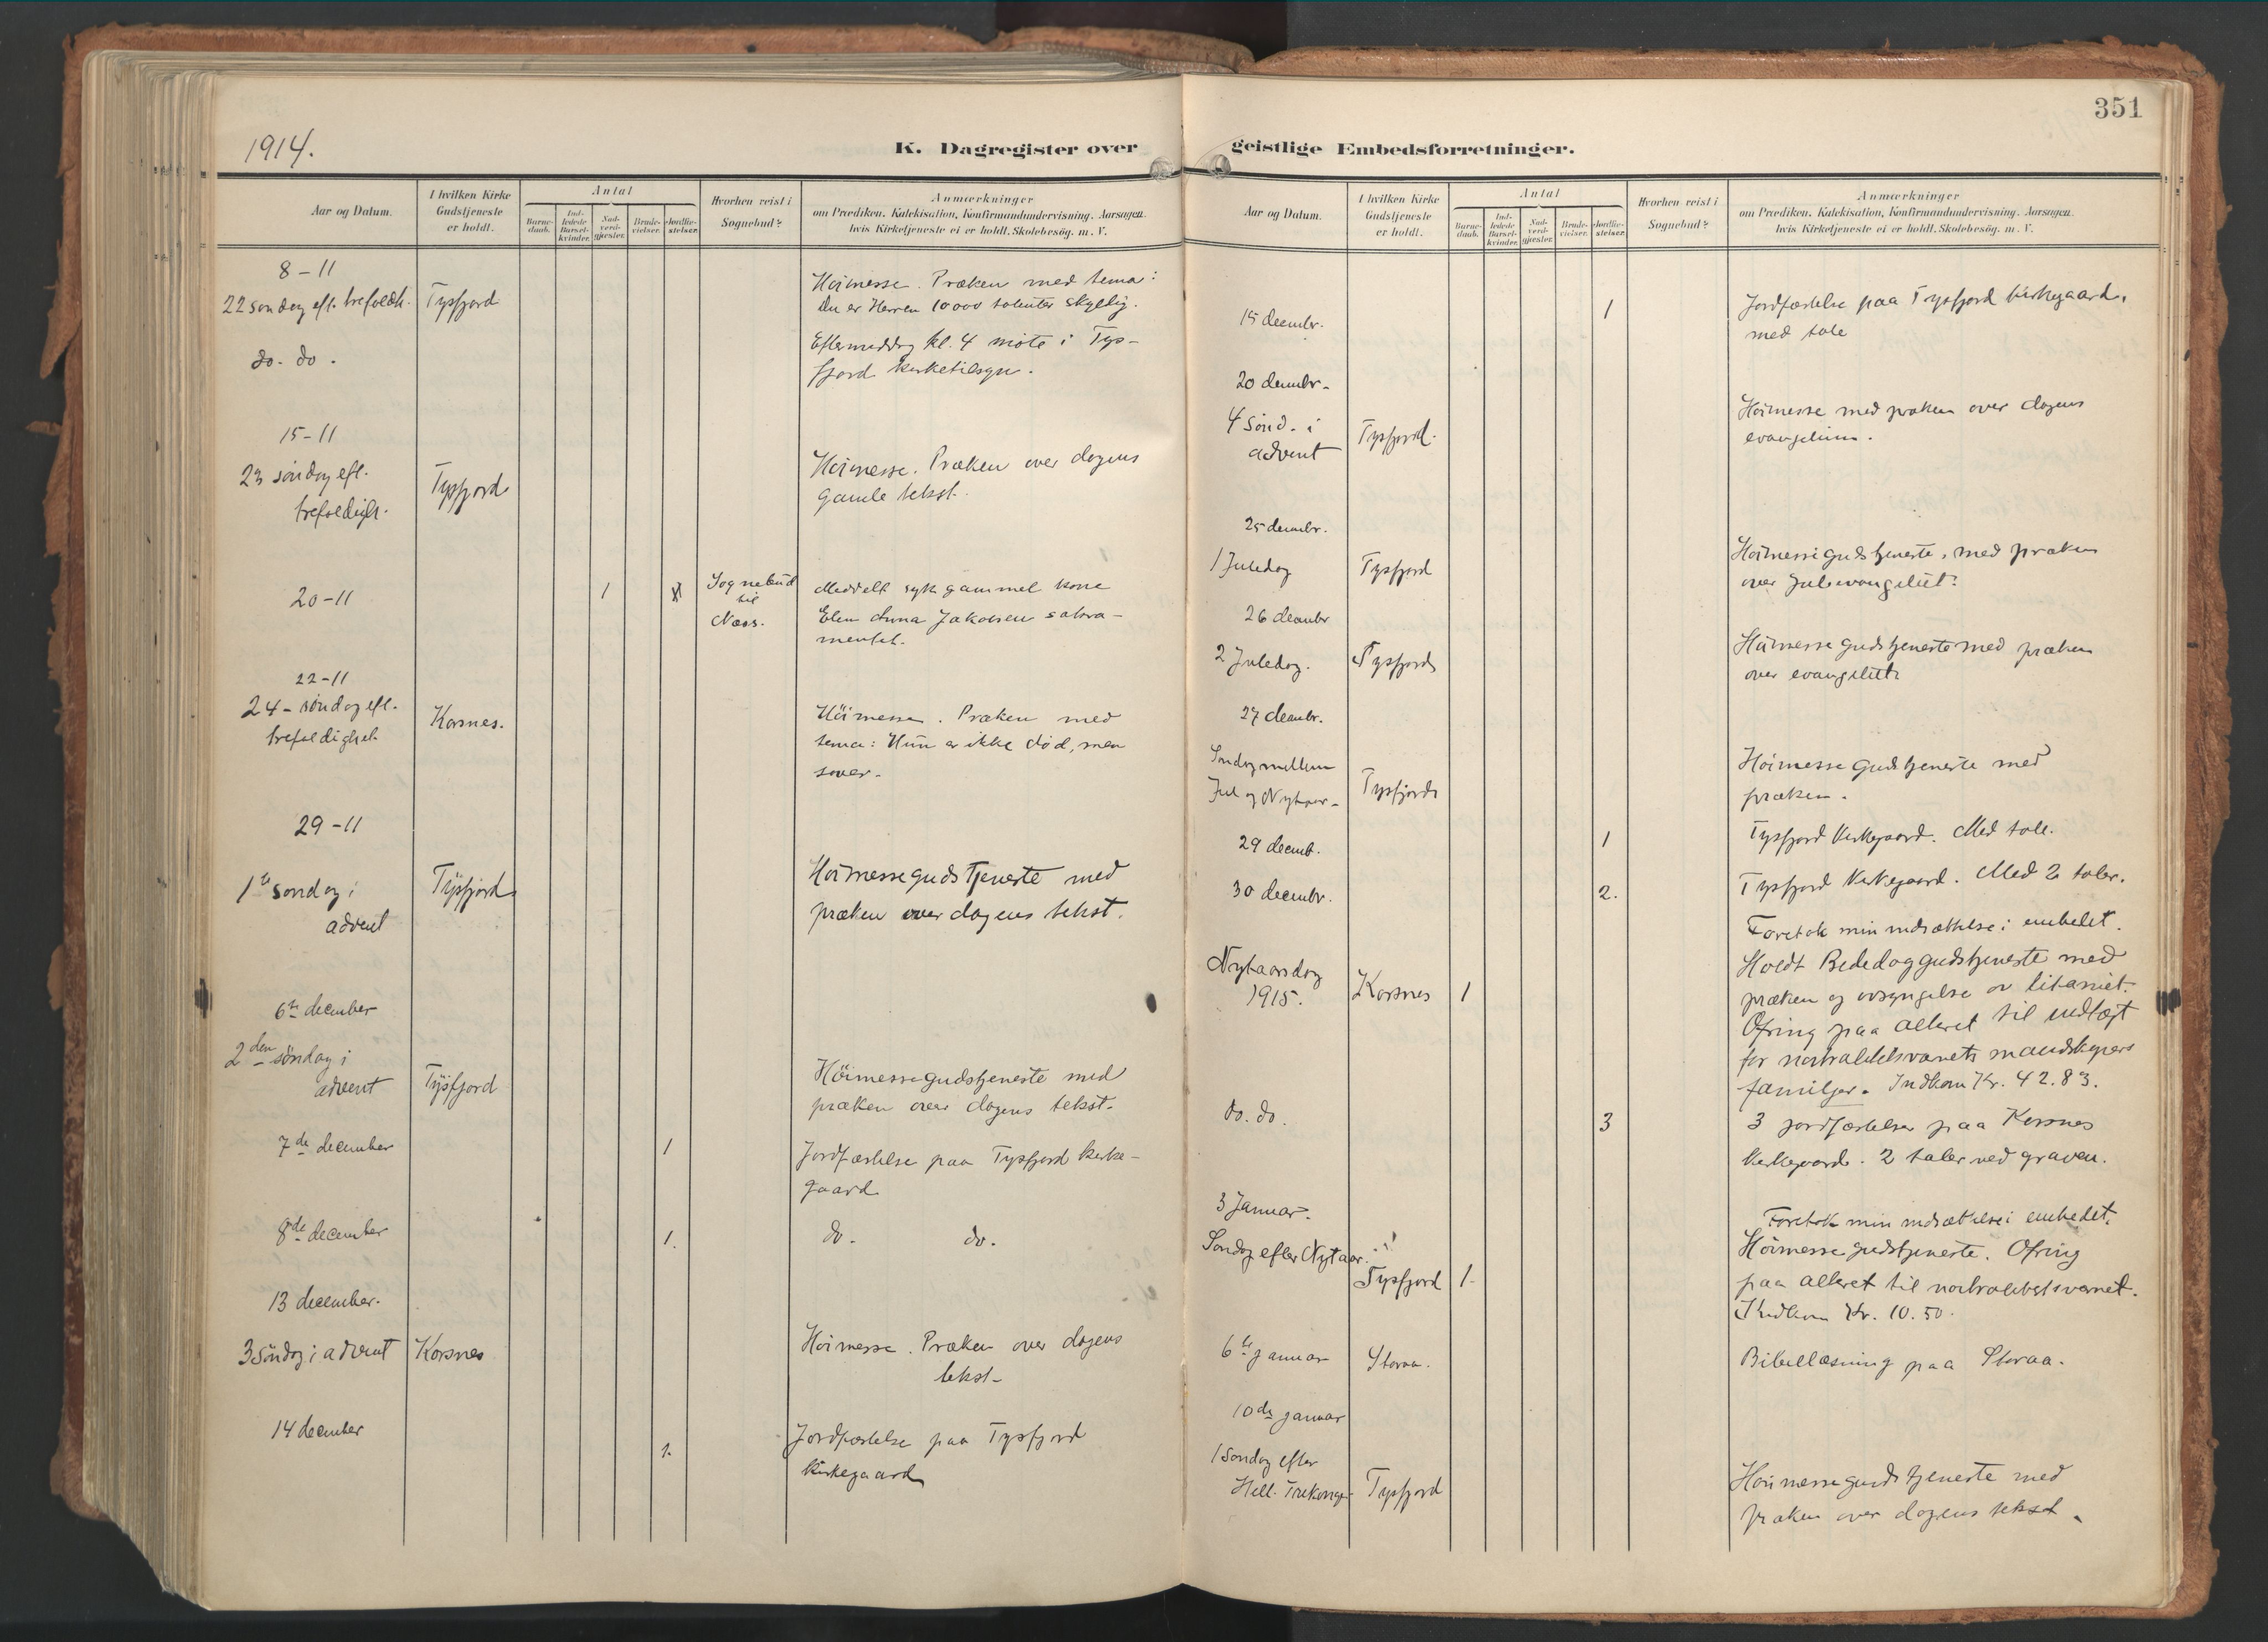 351
1914.
K. Dagregister over geistlige Embedsforretninger.
Aar og Datum.
I hvilken Kirke
Gudstjeneste
er holdt.
Antal
Barne-
daab.
Ind-
ledede
Barsel-
kvinder.
Nad-
verd-
gjæster.
Brude-
vielser.
Jordfæ-
stelser.
Hvorhen reist i
Sognebud?
Anmærkninger
om Prædiken, Katekisation, Konfirmandundervisning, Aarsagen,
hvis Kirketjeneste ei er holdt, Skolebesøg. m. V.
8-11
22 søndag eft. trefoldh. Tysfjord
Höimesse. Præken med tema:
Du er Herren 10000 talenter skyldig.
do. do.
Eftermiddag kl. 4 möte i Tys-
fjord kirketilsyn.
15-11
23 söndag eft.
trefoldigh.
Tysfjord
Höimesse. Præken over dagens
gamle tekst.
20-11
1
Sognebud
til
Næss.
Meddelt syk gammel kone
Elen Anna Jakobsen sakra-
mentet.
22-11
24- söndag eft.
trefoldighet
Korsnes.
Höimesse. Præken med
tema: Hun er ikke död, men
sover.
29-11
1te söndag i
advent
Tysfjord
Höimessegudstjeneste med
præken over dagens tekst.
6te december
2den söndag i
advent
Tysfjord
Höimessegudstjeneste med
præken over dagens tekst.
7de december
1
Jordfæstelse paa Tysfjord kirke-
gaard
8de december
1.
do. do.
13 december.
3 Söndag i advent Korsnes
Höimesse. Præken over dagens
tekst-
14 december
1.
Jordfæstelse paa Tysfjord
Kirkegaard
Aar og Datum.
I hvilken Kirke
Gudstjeneste
er holdt.
Antal
Barne-
daab.
Ind-
ledede
Barsel-
kvinder.
Nad-
verd-
gjæster.
Brude-
vielser.
Jordfæ-
stelser.
Hvorhen reist i
Sognebud?
Anmærkninger
om Prædiken, Katekisation, Konfirmandundervisning, Aarsagen,
hvis Kirketjeneste ei er holdt, Skolebesøg. m. V.
15 decembr.
1
Jordfæstelse paa Tysfjord kirkegaard.
med tale
20 decembr.
4 sönd. i
advent
Tysfjord.
Höimesse med præken over dagens
evangelium.
25 decembr.
1 Juledag
Tysfjord
Höimessegudstjeneste, med præken
over Juleevangeliet.
26 decembr
2 Juledag.
Tysfjord
Höimessegudstjeneste med præken
over evangeliet.
27 decembr.
Söndag mellem
Jul og Nytaar-
Tysfjord
Höimessegudstjeneste med
præken.
29 decemb.
1
Tysfjord Kirkegaard. Med tale.
30 decembr.
2.
Tysfjord Kirkegaard. Med 2 taler.
Foretok min indsættelse i embedet.
Nytaarsdag
1915.
Korsnes
1
Holdt Bededaggudstjeneste med
præken og avsyngelse av litaniet.
Ofring paa alteret til indtægt
for nøitralitetsvernets mandskapers
familjer. Indkom Kr. 42.83.
do. do.
3
3 jordfæstelser paa Korsnes
Kirkegaard. 2 taler ved graven.
3 Januar.
Söndag efter Nytaar.
Tysfjord
1.
Foretok min indsættelse i embedet.
Höimessegudstjeneste. Ofring
paa alteret til nøitralitetsvernet.
Indkom Kr. 10.50.
6te januar
Storaa.
Bibellæsning paa Storaa.
10de januar
1 Söndag efter
Hell. Trekonge
Tysfjord
Höimessegudstjeneste med
præken over dagens tekst.